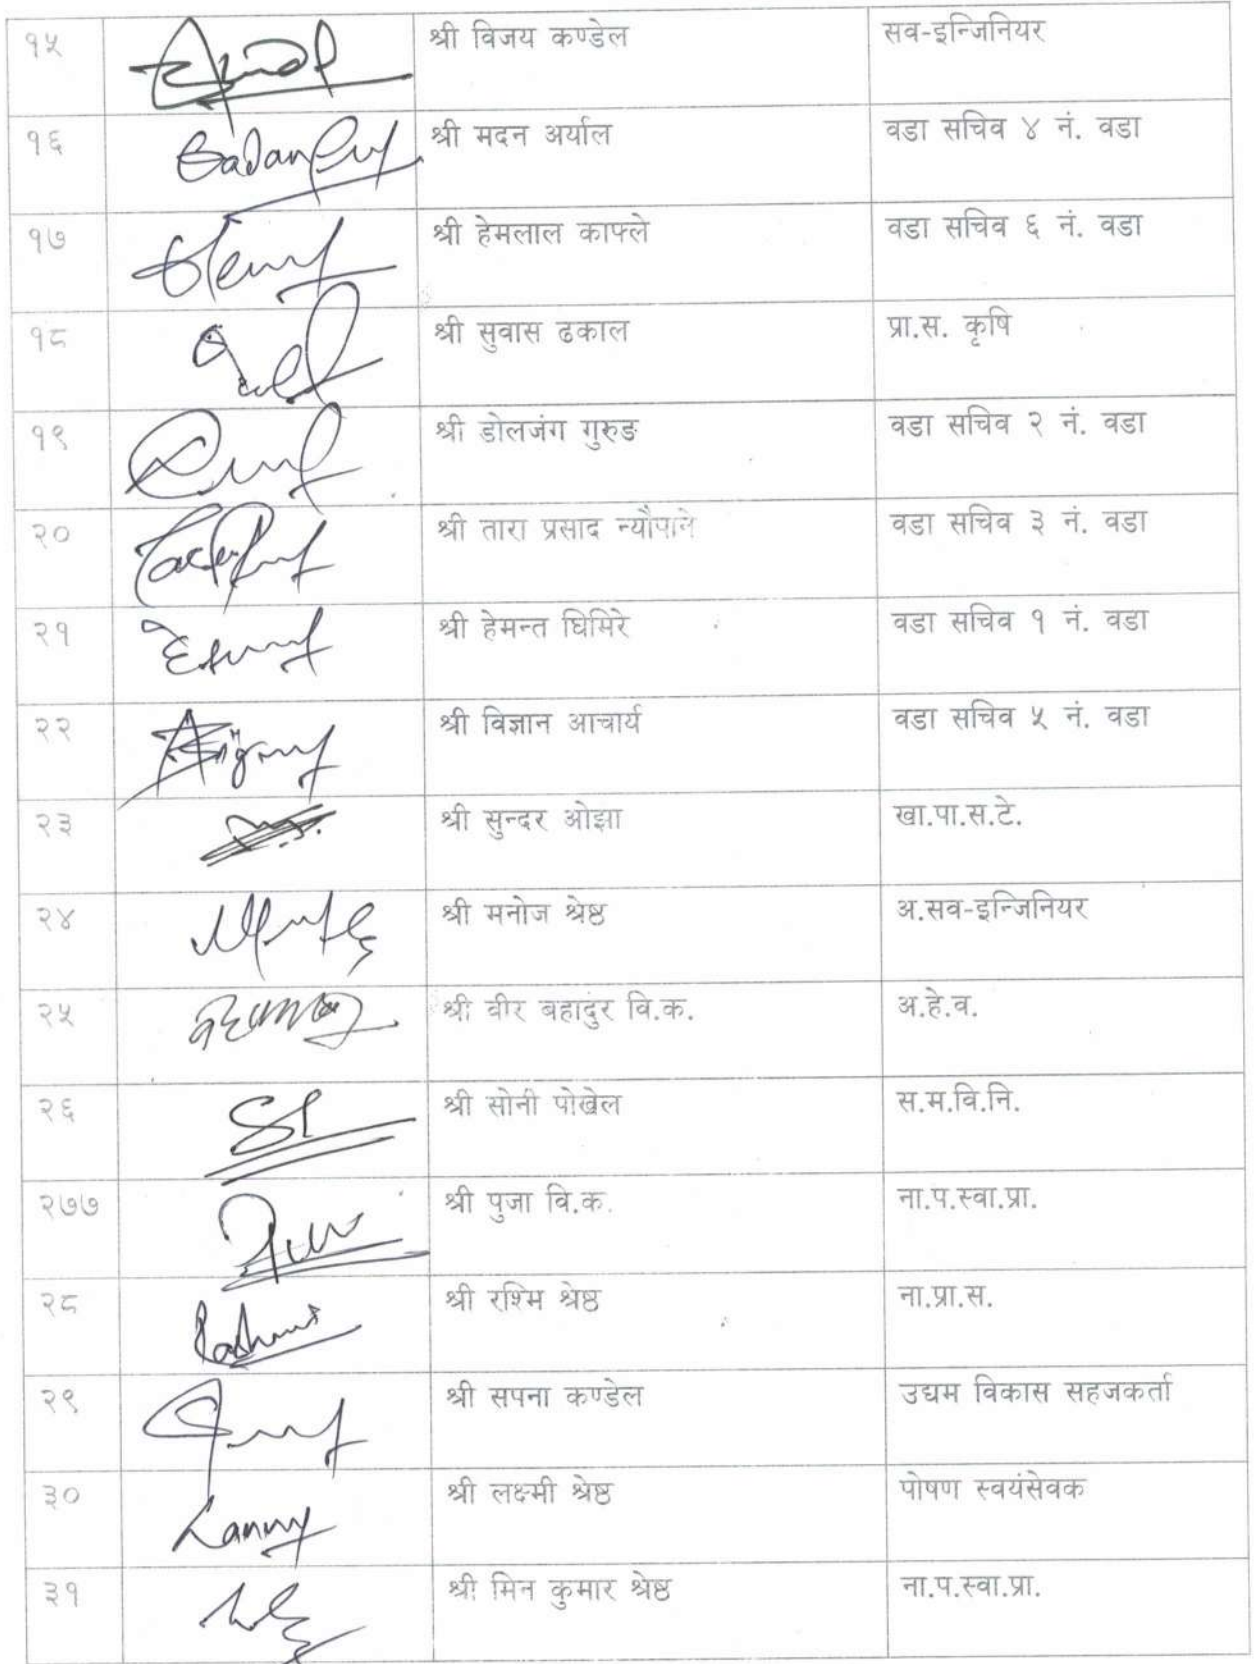 १५ श्री विजय कण्डेल सव-इन्जिनियर
१६ श्री मदन अर्याल वडा सचिव ४ नं. वडा
१७ श्री हेमलाल काफ्ले वडा सचिव ६ नं. वडा
१८ श्री सुवास ढकाल प्रा.स. कृषि
१९ श्री डोलजंग गुरुङ वडा सचिव २ नं. वडा
२० श्री तारा प्रसाद न्यौपाने वडा सचिव ३ नं. वडा
२१ श्री हेमन्त घिमिरे वडा सचिव १ नं. वडा
२२ श्री विज्ञान आचार्य वडा सचिव ५ नं. वडा
२३ श्री सुन्दर ओझा खा.पा.स.टे.
२४ श्री मनोज श्रेष्ठ अ.सव-इन्जिनियर
२५ श्री वीर बहादुर वि.क. अ.हे.व.
२६ श्री सोनी पोखेल स.म.वि.नि.
२७७ श्री पुजा वि.क. ना.प.स्वा.प्रा.
२८ श्री रश्मि श्रेष्ठ ना.प्रा.स.
२९ श्री सपना कण्डेल उद्यम विकास सहजकर्ता
३० श्री लक्ष्मी श्रेष्ठ पोषण स्वयंसेवक
३१ श्री मिन कुमार श्रेष्ठ ना.प.स्वा.प्रा.